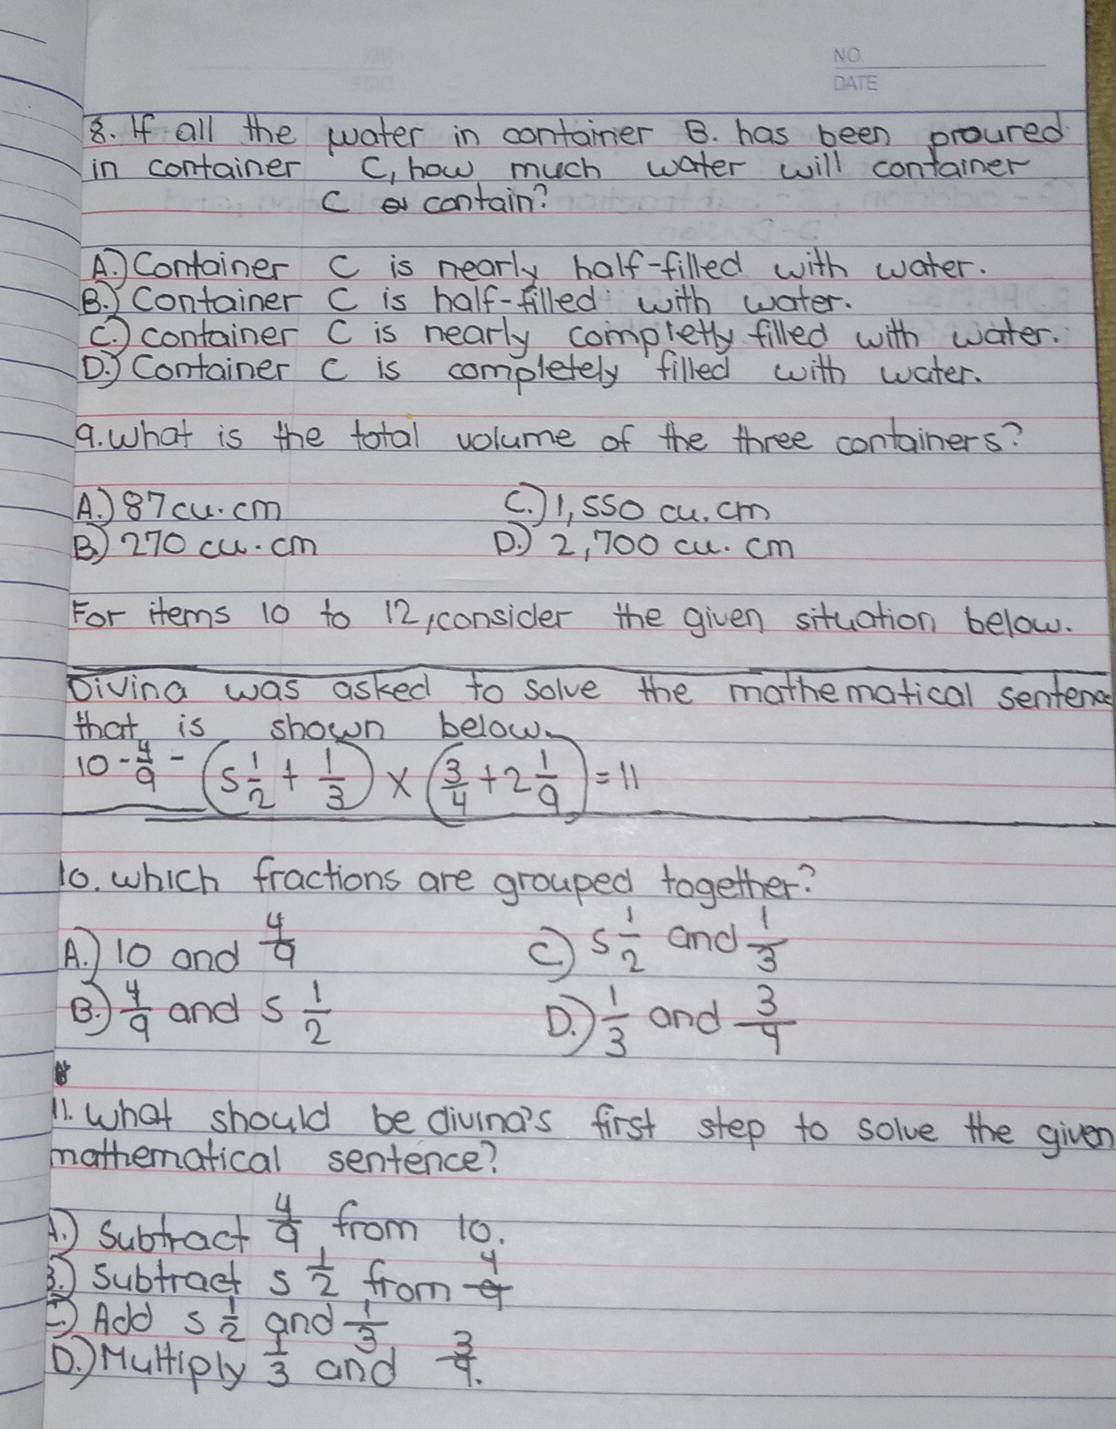 NO.
DATE
8. If all the water in container B. has been proured
in container C, how much water will container
C contain?
A.) Container C is nearly half-filled with water.
B.) Container C is half-filled with water.
C.) container C is nearly completly filled with water.
D.) Container C is completely filled with water.
9. What is the total volume of the three containers?
A.) 87 cu. cm C.) 1,550 cu. cm
B.) 270 cu. cm D.) 2,700 cu. cm
For items 10 to 12, consider the given situation below.
Divina was asked to solve the mathematical sentence
that is shown below.
10 - 4/9 - (5 1/2 + 1/3) × (3/4 + 2 1/9) = 11
10. which fractions are grouped together?
A.) 10 and 4/9 C.) 5 1/2 and 1/3
B.) 4/9 and 5 1/2 D.) 1/3 and 3/4
11. What should be divina's first step to solve the given
mathematical sentence?
A.) Subtract 4/9 from 10.
B.) Subtract 5 1/2 from 4/9
C.) Add 5 1/2 and 1/3
D.) Multiply 1/3 and 3/4.